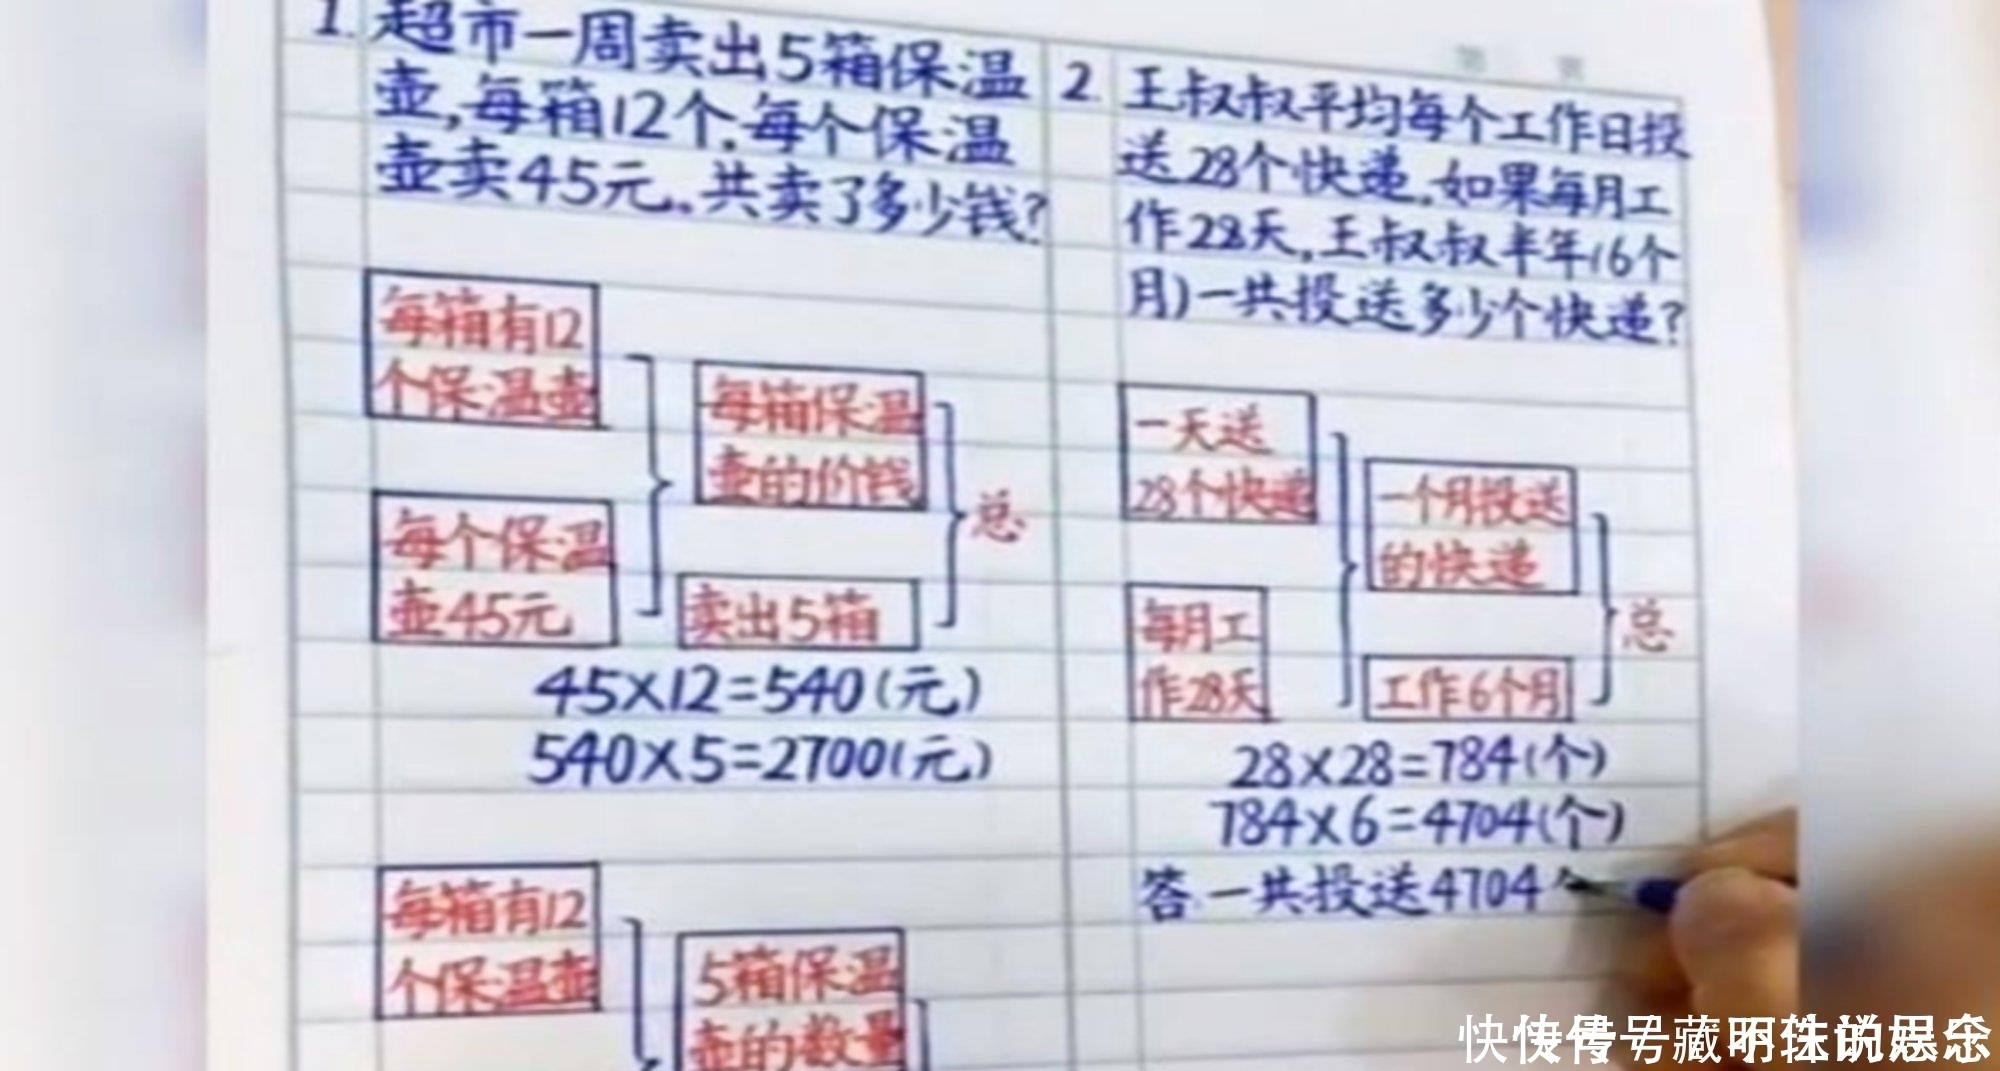 1. 超市一周卖出5箱保温
壶,每箱12个,每个保温
壶卖45元。共卖了多少钱?
每箱有12
个保温壶
每箱保温
壶的价钱
总
每个保温
壶45元
卖出5箱
45×12=540(元)
540×5=2700(元)
每箱有12
个保温壶
5箱保温
壶的数量
2. 王叔叔平均每个工作日投
送28个快递,如果每月工
作28天,王叔叔半年(6个
月)一共投送多少个快递?
一天送
28个快递
一个月投送
的快递
总
每月工
作28天
工作6个月
28×28=784(个)
784×6=4704(个)
答 一共投送4704个